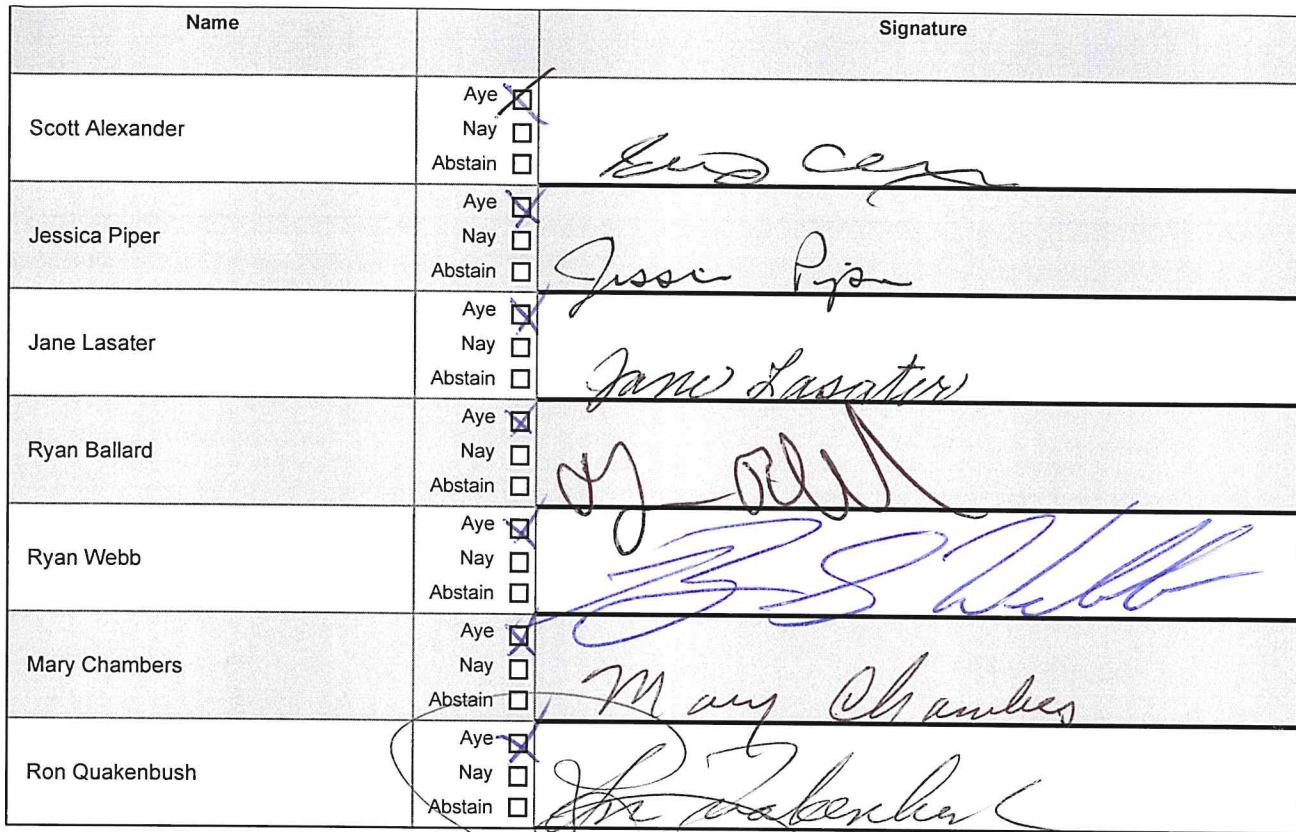 Name Signature
Scott Alexander
Aye
Nay
Abstain
Jessica Piper
Aye
Nay
Abstain
Jessica Piper
Jane Lasater
Aye
Nay
Abstain
Jane Lasater
Ryan Ballard
Aye
Nay
Abstain
Ryan Webb
Aye
Nay
Abstain
Webb
Mary Chambers
Aye
Nay
Abstain
Mary Chambers
Ron Quakenbush
Aye
Nay
Abstain